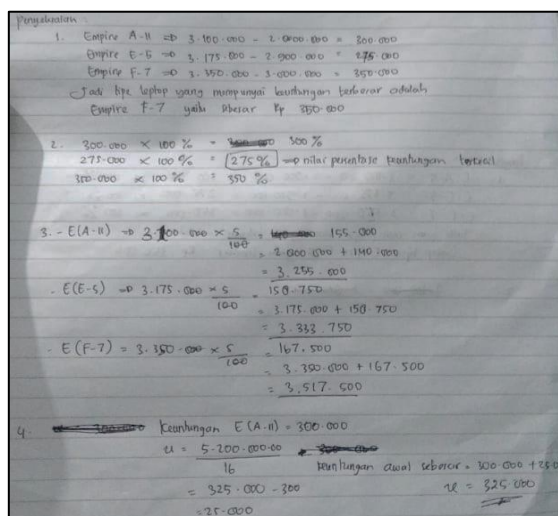 Penyelesaian :
1. Empire A-11 => 3.100.000 - 2.800.000 = 300.000
Empire E-5 => 3.175.000 - 2.900.000 = 275.000
Empire F-7 => 3.350.000 - 3.000.000 = 350.000
Jadi tipe laptop yang mempunyai keuntungan terbesar adalah
Empire F-7 yaitu sebesar Rp 350.000
2. 300.000 × 100 % = 300 %
275.000 × 100 % = 275 % => nilai persentase keuntungan terkecil
350.000 × 100 % = 350 %
3. - E(A-11) => 3.100.000 × 5/100 = 155.000
= 2.000.000 + 140.000
= 3.255.000
- E(E-5) => 3.175.000 × 5/100 = 158.750
= 3.175.000 + 158.750
= 3.333.750
- E(F-7) = 3.350.000 × 5/100 = 167.500
= 3.350.000 + 167.500
= 3.517.500
4. Keuntungan E(A-11) = 300.000
u = 5.200.000.00 / 16
keuntungan awal sebesar = 300.000 + 25.0
= 325.000 - 300
u = 325.000
= 25.000